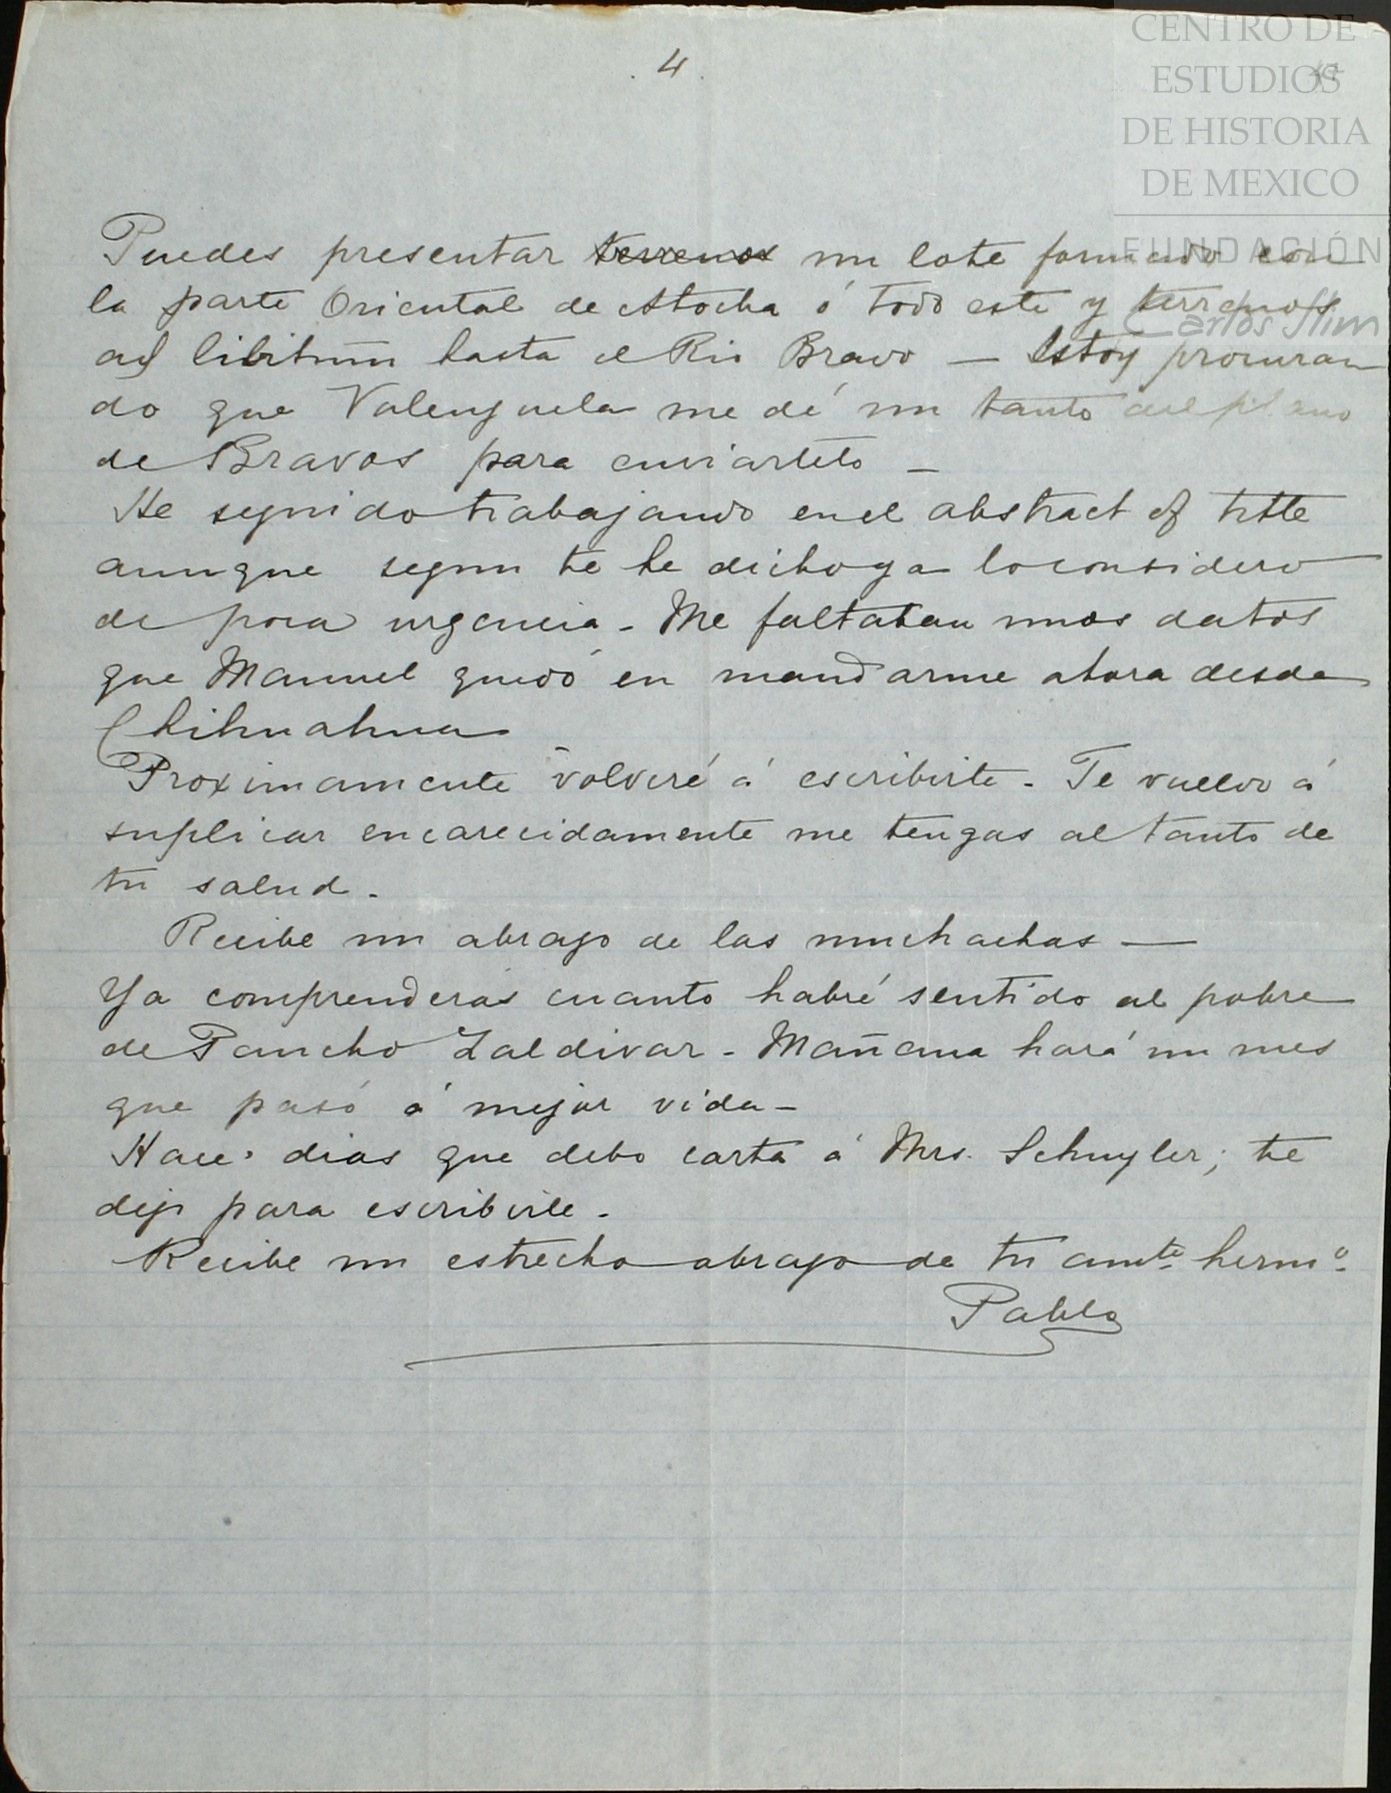 4
CENTRO DE
ESTUDIOS
DE HISTORIA
DE MEXICO
FUNDACIÓN
Carlos Slim
Puedes presentar terrenos un lote formado con
la parte Oriental de Atocha ó todo este y terrenos
ad libitum hasta el Rio Bravo — Estoy procuran
do que Valenzuela me dé un tanto del plano
de Bravos para enviartelo —
He seguido trabajando en el abstract of title
aunque segun te he dicho ya lo considero
de poca urgencia - Me faltaban unos datos
que Manuel quedó en mandarme ahora desde
Chihuahua
Proximamente volveré á escribirte - Te vuelvo á
suplicar encarecidamente me tengas al tanto de
tu salud -
Recibe un abrazo de las muchachas —
Ya comprenderás cuanto habré sentido al pobre
de Pancho Zaldivar - Mañana hará un mes
que pasó á mejor vida -
Hace dias que debo carta á Mrs. Schuyler; te
dejo para escribirle -
Recibe un estrecho abrazo de tu amte. hermo.
Pablo